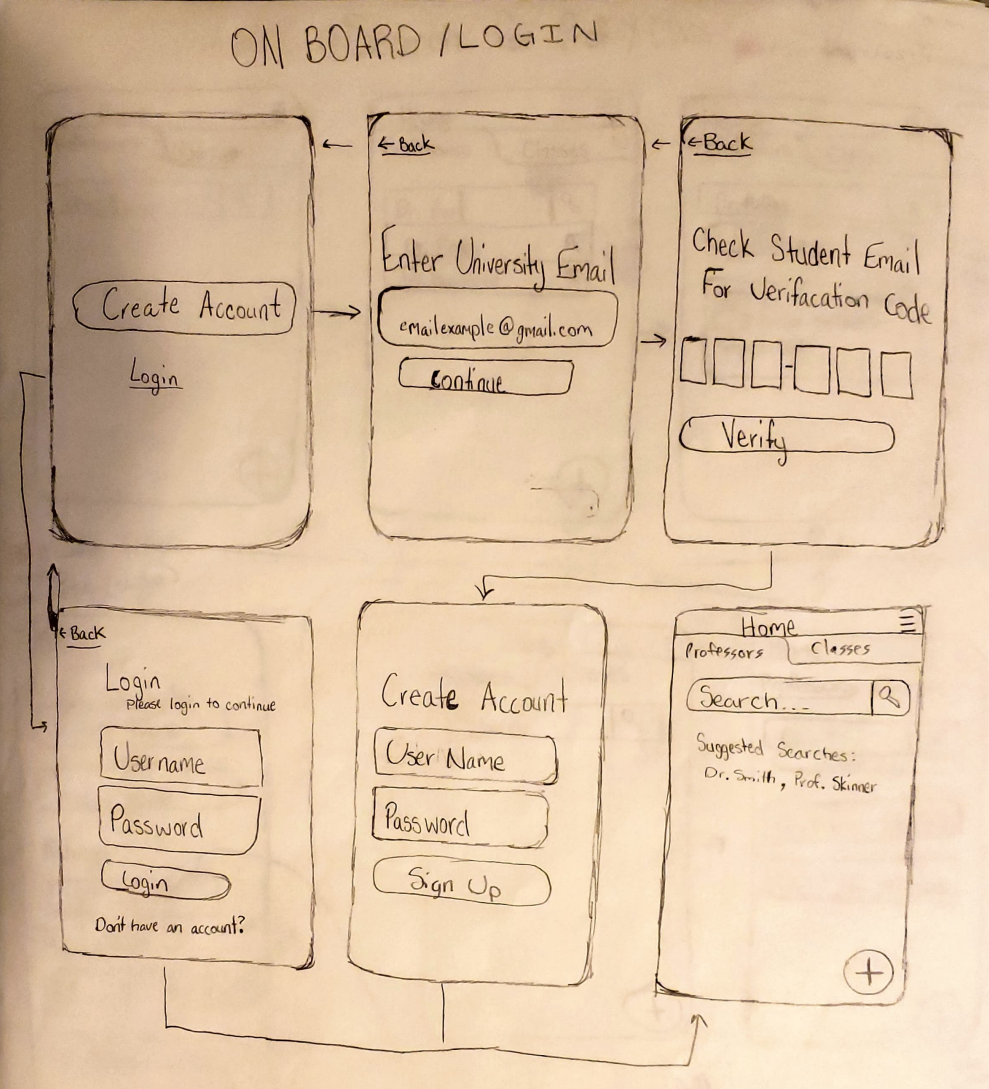 ON BOARD / LOGIN
Create Account
Login
← Back
Enter University Email
emailexample@gmail.com
Continue
← Back
Check Student Email
For Verifacation Code
-
Verify
← Back
Login
Please login to continue
Username
Password
Login
Don't have an account?
Create Account
User Name
Password
Sign Up
Home
Professors Classes
Search...
Suggested Searches:
Dr. Smith, Prof. Skinner
+